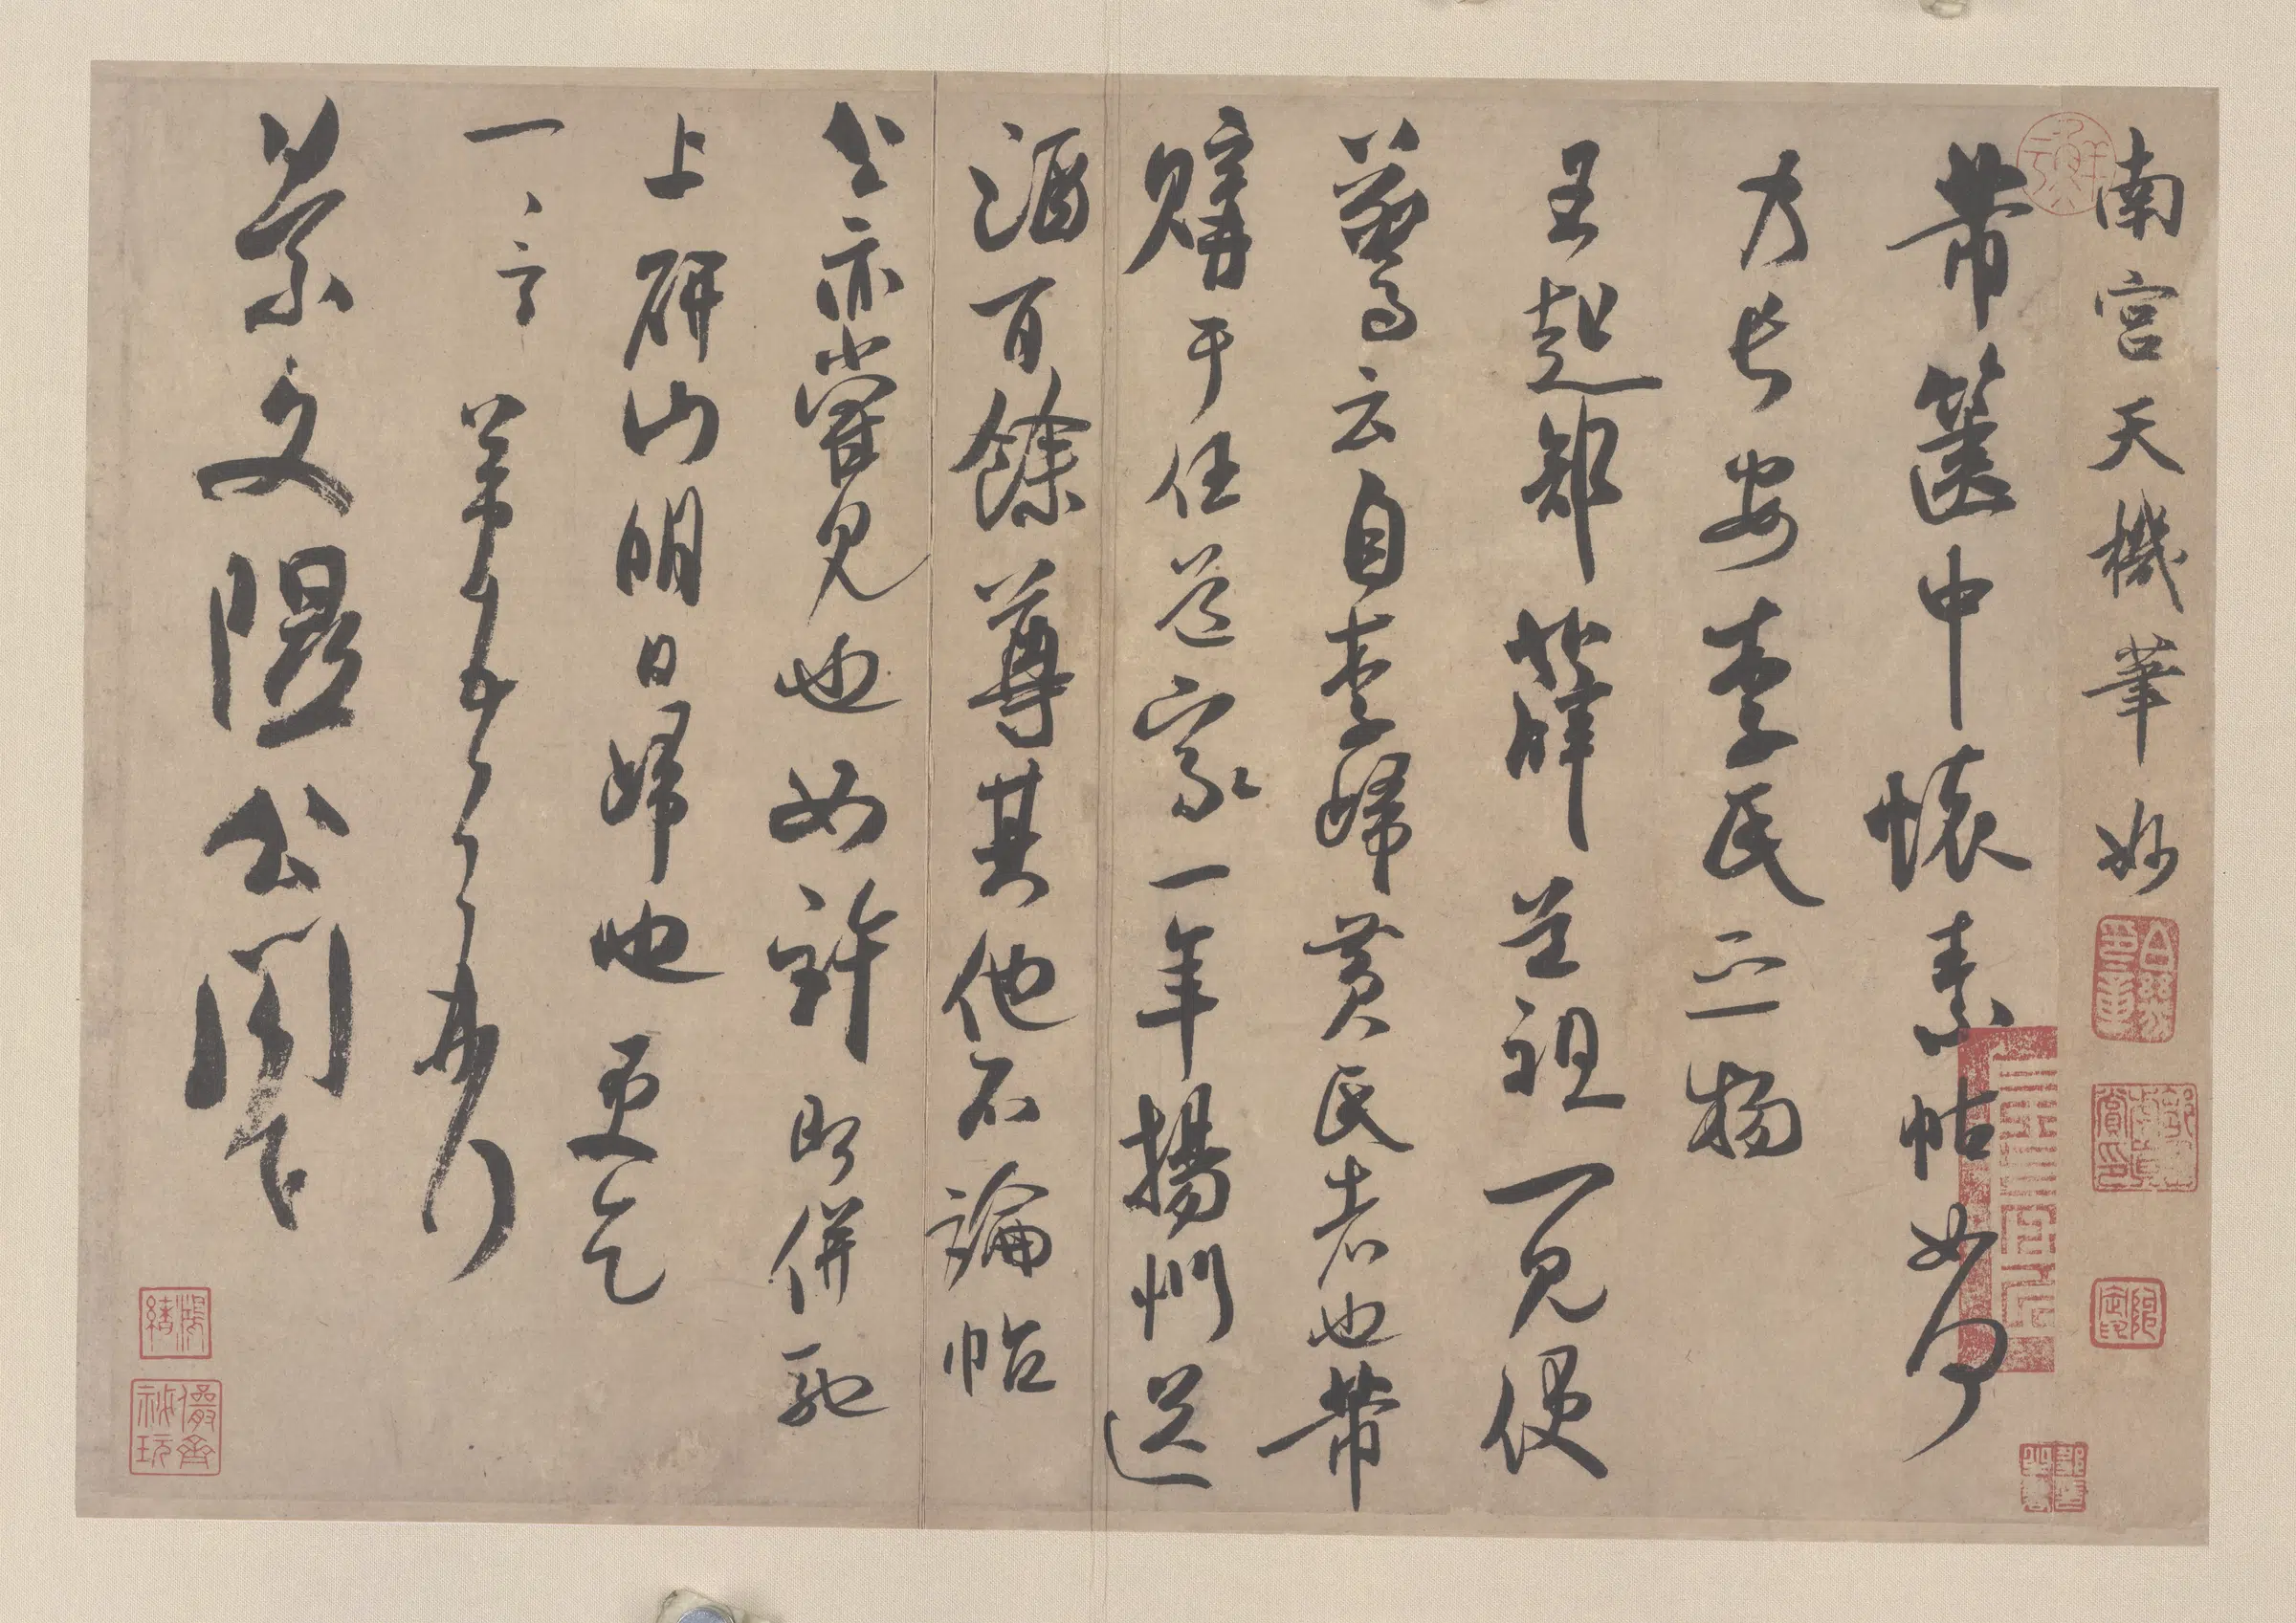 南宮天機筆妙
芾篋中懷素帖如何
乃長安李氏之物
王起部薛道祖一見便
驚云自李歸黄氏者也芾
購于任道家一年揚州送
酒百餘尊其他不論帖
公亦嘗見也如許即併馳
上研山明日歸也更乞
一言芾頓首再拜
景文隰公閣下
鴻緒
儼齋秘玩